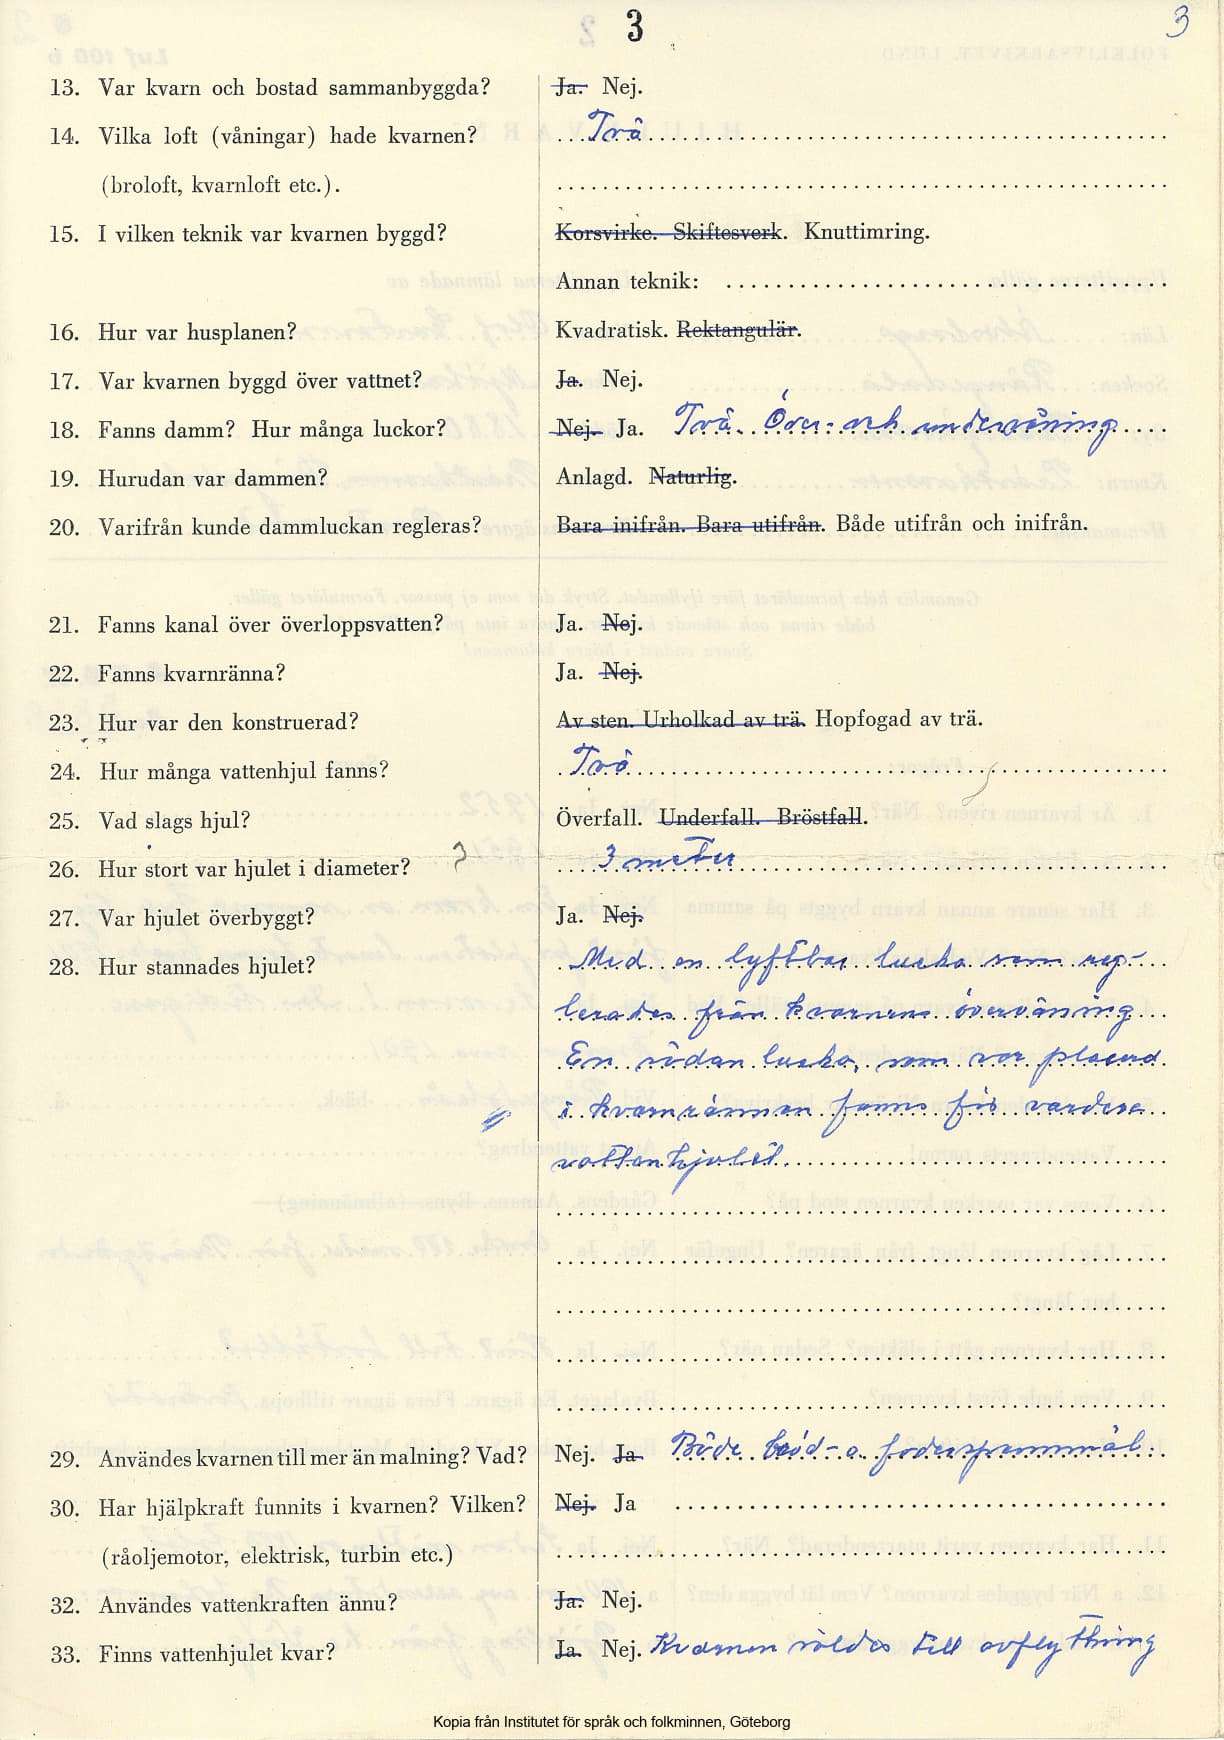 3
3
13. Var kvarn och bostad sammanbyggda? Ja. Nej.
14. Vilka loft (våningar) hade kvarnen? Två
(broloft, kvarnloft etc.).
15. I vilken teknik var kvarnen byggd? Korsvirke. Skiftesverk. Knuttimring.
Annan teknik:
16. Hur var husplanen? Kvadratisk. Rektangulär.
17. Var kvarnen byggd över vattnet? Ja. Nej.
18. Fanns damm? Hur många luckor? Nej. Ja. Två. Över- och undervåning
19. Hurudan var dammen? Anlagd. Naturlig.
20. Varifrån kunde dammluckan regleras? Bara inifrån. Bara utifrån. Både utifrån och inifrån.
21. Fanns kanal över överloppsvatten? Ja. Nej.
22. Fanns kvarnränna? Ja. Nej.
23. Hur var den konstruerad? Av sten. Urholkad av trä. Hopfogad av trä.
24. Hur många vattenhjul fanns? Två
25. Vad slags hjul? Överfall. Underfall. Bröstfall.
26. Hur stort var hjulet i diameter? 3 meter
27. Var hjulet överbyggt? Ja. Nej.
28. Hur stannades hjulet? Med en lyftbar lucka som reg-
lerades från kvarnens övervåning
En sådan lucka, som var placerad
i kvarnrännan fanns för vardera
vattenhjulet
29. Användes kvarnen till mer än malning? Vad? Nej. Ja Både bröd- o. foderspannmål.
30. Har hjälpkraft funnits i kvarnen? Vilken? Nej. Ja
(råoljemotor, elektrisk, turbin etc.)
32. Användes vattenkraften ännu? Ja. Nej.
33. Finns vattenhjulet kvar? Ja. Nej. Kvarnen såldes till avflyttning
Kopia från Institutet för språk och folkminnen, Göteborg